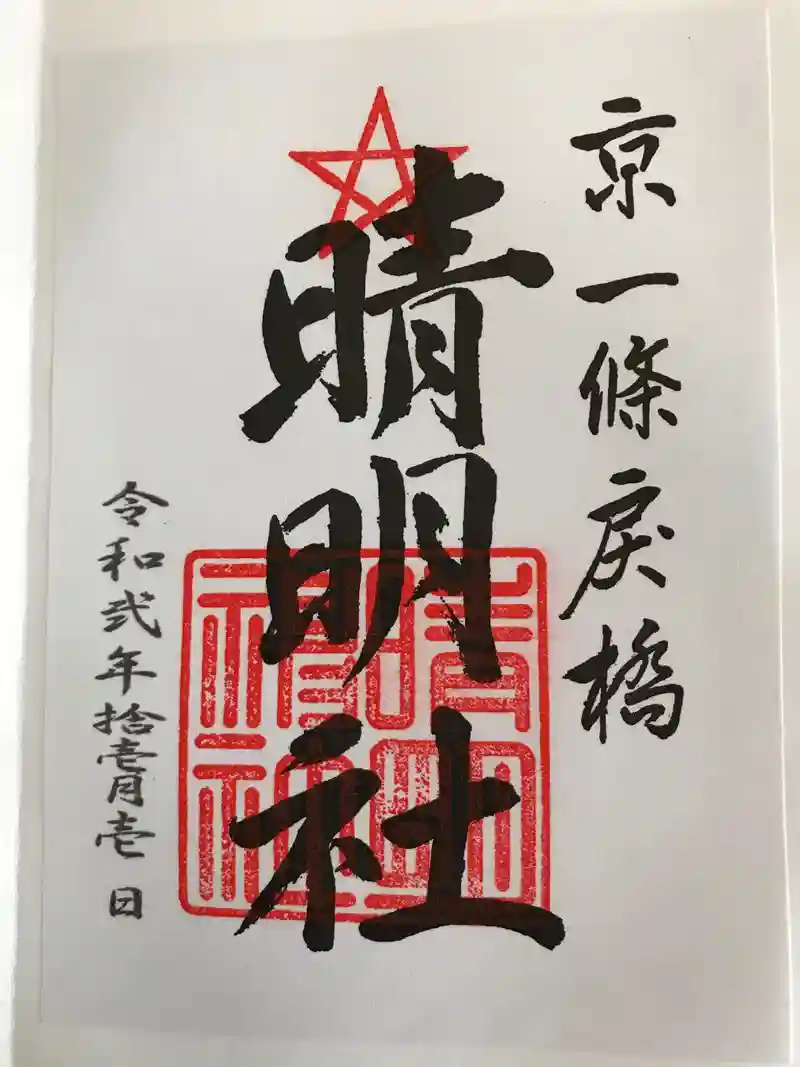 京一條戻橋
晴明社
晴明神社
令和弐年拾壱月壱日